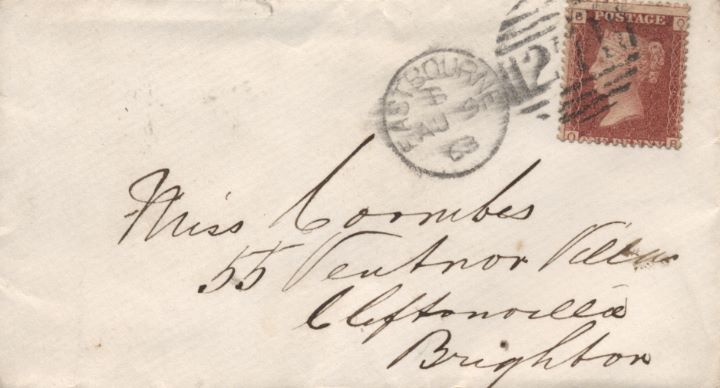 POSTAGE
EASTBOURNE
Miss Coombes
55 Ventnor Villas
Cliftonville
Brighton